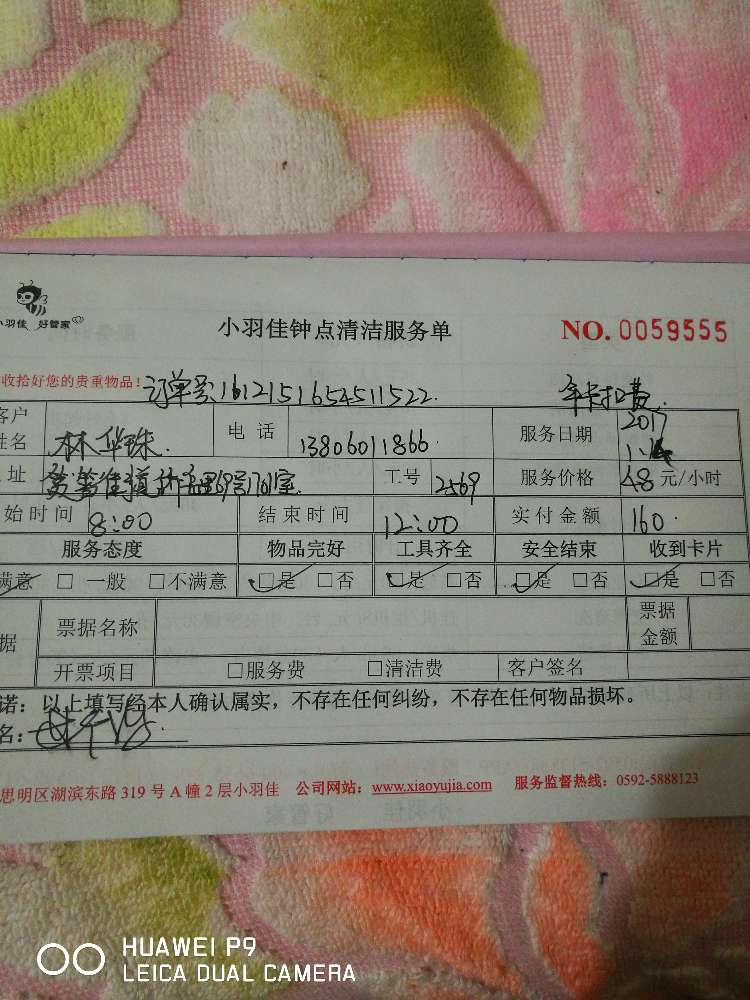 小羽佳 好管家
小羽佳钟点清洁服务单 NO. 0059555
收拾好您的贵重物品! 订单号:1612151654511522. 年卡扣费
客户姓名 林华珠 电 话 13806011866. 服务日期 2017
址 工号 2569 服务价格 48元/小时
始时间 8:00 结束时间 12:00 实付金额 160.
服务态度 物品完好 工具齐全 安全结束 收到卡片
满意 □ 一般 □不满意 □是 □否 □是 □否 □是 □否 □是 □否
据 票据名称 票据金额
开票项目 □服务费 □清洁费 客户签名
诺：以上填写经本人确认属实，不存在任何纠纷，不存在任何物品损坏。
名：
思明区湖滨东路 319 号 A 幢 2 层小羽佳 公司网站：www.xiaoyujia.com 服务监督热线：0592-5888123
HUAWEI P9
LEICA DUAL CAMERA